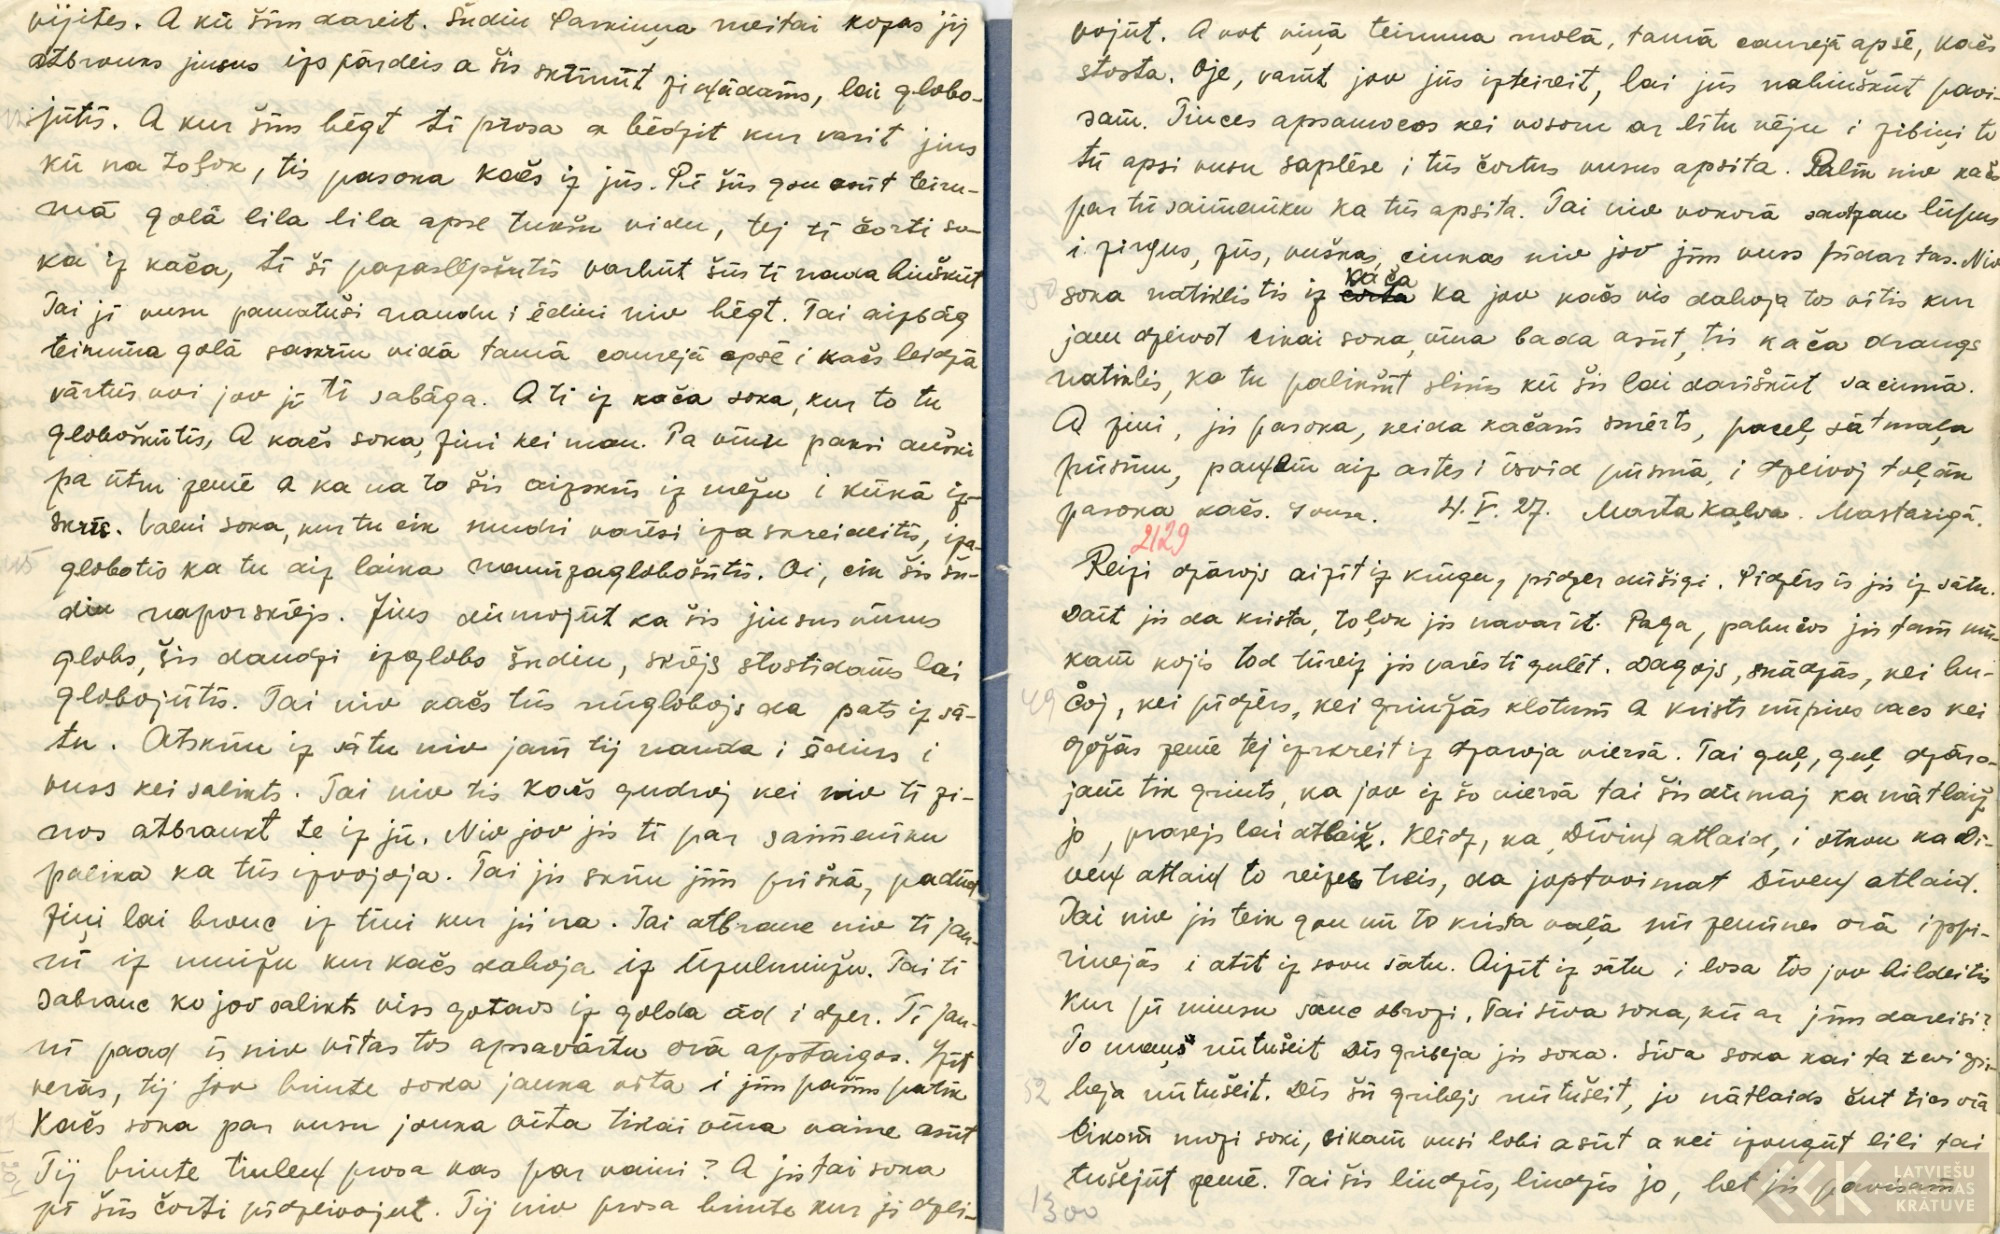 vijites. A kū šim dareit. Šudin Parkiuņa meitai kozas jij
atbrouks jiusus izpārdeis a šis sktīnūt ziņādams, lai globo-
jūtis. A kur šim bēgt tī prosa a bēdzit kur varit jius
kū na toļok, tis pasoka kačs iz jūs. Pī šūs gon asūt teiru-
mā golā lila lila apse tukšu vidu, tej tī čorti so-
ka iz kača, tī šī pazaslēpšutīs varbūt šūs tī nava biuškūt
Tai jī vusu pamatuši naudu i ēdini niv bēgt. Tai aizbāg
teiruma golā saskrin vidā tamā caurejā apsē i kačs leidzā
vārtūs voi jov jī tī sabāga. A tī iz kača soka, kur to tu
globoškūtīs, A kačs soka, zini kei man. Pa vīnu paksi auški
pa ūtru zemē a ka na to šis aizskrīs iz mežu i kūkā iz-
skrīs. Valni soka, kur tu cik mudri varēsi iza skreideitīs, iza-
globotīs ka tu aiz laika navūzaglobošūtīs. Oi, cik šis šu-
din naporskrējs. Jius dūmojūt ka šis jiusus vīnus
globs, šis daudzi izglobs šudin, skrējs stostidams lai
globojūtīs. Tai niv kačs tūs nūglobojs da pats iz sā-
tu. Atskrin iz sātu niv jam tij nauda i ēdins i
vuss kei salikts. Tai niv tis kačs gudroj kei niv tī zi-
nos atbraukt te iz jū. Niv jov jis tī par saimenīku
palika ka tūs izvojoja. Tai jis skrin jim prīškā, padūd
ziņi lai brouc iz tini kur jis na. Tai atbrauc niv tī jau-
nī iz muižu kur kačs dabova iz Ūzulmuižu. Tai tī
sabrauc ko jov salikts viss gotavs iz golda ād i dzer. Tī jau-
nī paad īs niv vītas tos apsavārtu orā apstaigos. Izīt
verās, tij jov briute soka jauka vīta i jim pašim patīk
Kačs soka par vusu jauka vīta tikai vīna vaine asūt
Tij briute tiuleņ prosa kas par vaini? A jis tai soka
pī šūs čorti pīdzeivojut. Tij niv prosa briute kur jī dzei-
vojūt. A vot viņā teiruma molā, tamā caurejā apsē, kačs
stosta. Oje, varūt jov jūs izteireit, lai jūs nabiuškūt pavi-
sam. Tiuces apsamocos kei vosoru ar lītu vēju i zibiņi to
tū apsi vusu saplēse i tūs čortus vusus apsita. Palīk niv kačs
par tū saimenīku ka tūs apsita. Tai niv vokorā sadzan lūpus
i zirgus, zūs, vuškas, ciukas niv jov jim vuss pīdar tas. Niv
soka natiklis tis iz kača ka jov kačs vis dabova tos vītis kur
jam dzeivot cikai soka, vīna bada asūt, tis kača draugs
natiklis, ka tu palikšūt slims kū šis lai dariškūt vacumā.
A zini, jis pasoka, keida kačam smērts, pacel, sātmaļa
pūsmu, paņem aiz astes i īsvīd pūsmā, i dzeivoj toļok
pasoka kačs. I vusa. 4. V. 27. Marta Kaļva. Mastarigā.
2129
Reizi dzārojs aizīt iz krūgu, pīdzer dīšigi. Pīdzērs īs jis iz sātu.
Daīt jis da krista, toļok jis navar īt. Paga, pabučos jis tam mū-
kam kojis tod tūreiz jis varēs tī gulēt. Dagojs, skādzās, kei bu-
čoj, kei pīdzērs, kei griužās klotum a krists nūpivs vacs kei
gožās zemē tej izkreit iz dzaroja viersā. Tai guļ, guļ dzāro-
jam tik griuts, ka jov iz šo viersā tai šis dūmoj ka nātlaiž
jo, prosejs lai atlaiž. Klīdz, ka „Dīviņ atlaid, i otkon ka Dī-
veņ atlaid to reizes treis, da joptvoimat Dīveņ atlaid.
Tai niv jis teik gon nū to krista vaļā nū zemines orā izpi-
rinejās i atīt iz sovu sātu. Aizīt iz sātu i losa tos jov bildeitis
kur pī miusu sauc obrozi. Tai sīva soka, kū ar jim dareisi?
To maņ nūtušeit Dīs gribeja jis soka. Sīva soka kai ta tevi gri-
beja nūtušeit. Dīs šū gribejs nūtušeit, jo nātlaids čut tics orā
Cikom mozi soki, cikam vusi lobi asūt a kei izaugūt lili tai
tušejūt zemē. Tai šis liudzīs, liudzīs jo, bet jis pavisam
49
52
1300
LATVIEŠU
FOLKLORAS
KRĀTUVE